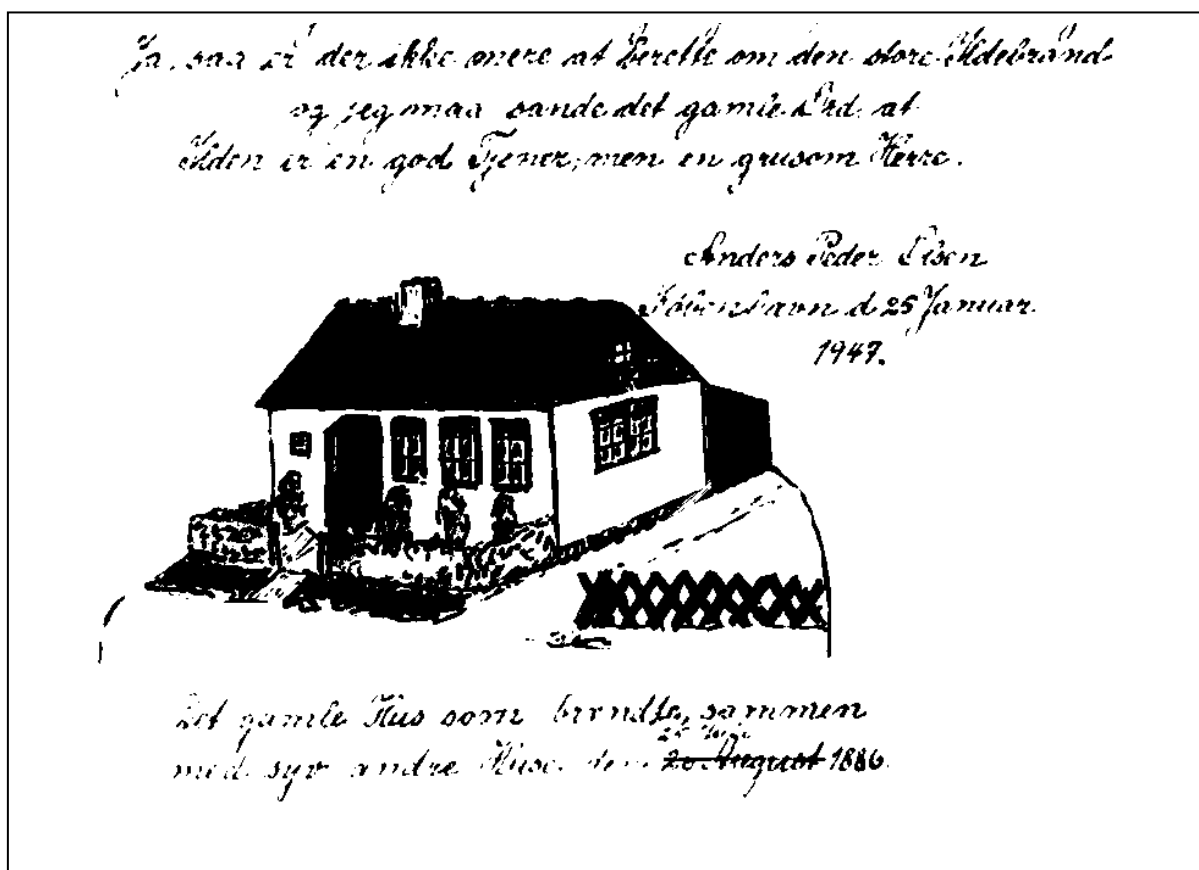 Ja, saa er der ikke mere at berette om den store Ildebrand
og jeg maa sande det gamle Ord, at
Ilden er en god Tjener, men en grusom Herre.
Anders Peder Olsen
København d 25 Januar
1947.
Det gamle Hus som brændte, sammen
med syv andre Huse, den 20 August 1886.